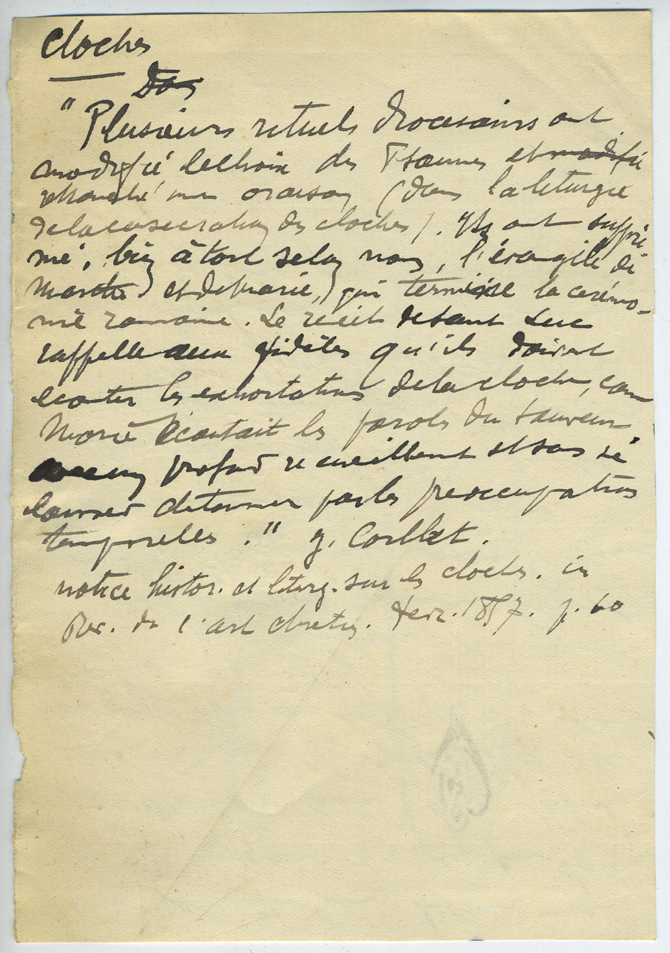 cloches
Dans
"Plusieurs rituels diocesains ont
modifié le choix des Psaumes et modifié
retranché une oraison (dans la liturgie
de la consecration des cloches). Ils ont suppri
mé, bien à tort selon nous, l'évangile de
Marthe et de Marie, qui termine la cérémo-
nie romaine. Le récit de saint Luc
rappelle aux fidèles qu'ils doivent
ecouter les exhortations de la cloche, com
Marie écoutait les paroles du Sauveur
profond recueillement et sans se
laisser détourner par les preoccupations
temporelles." J. Corblet.
notice histor. et liturg. sur les cloches. in
Rev. de l'art chretien. fevr. 1857. p. 60